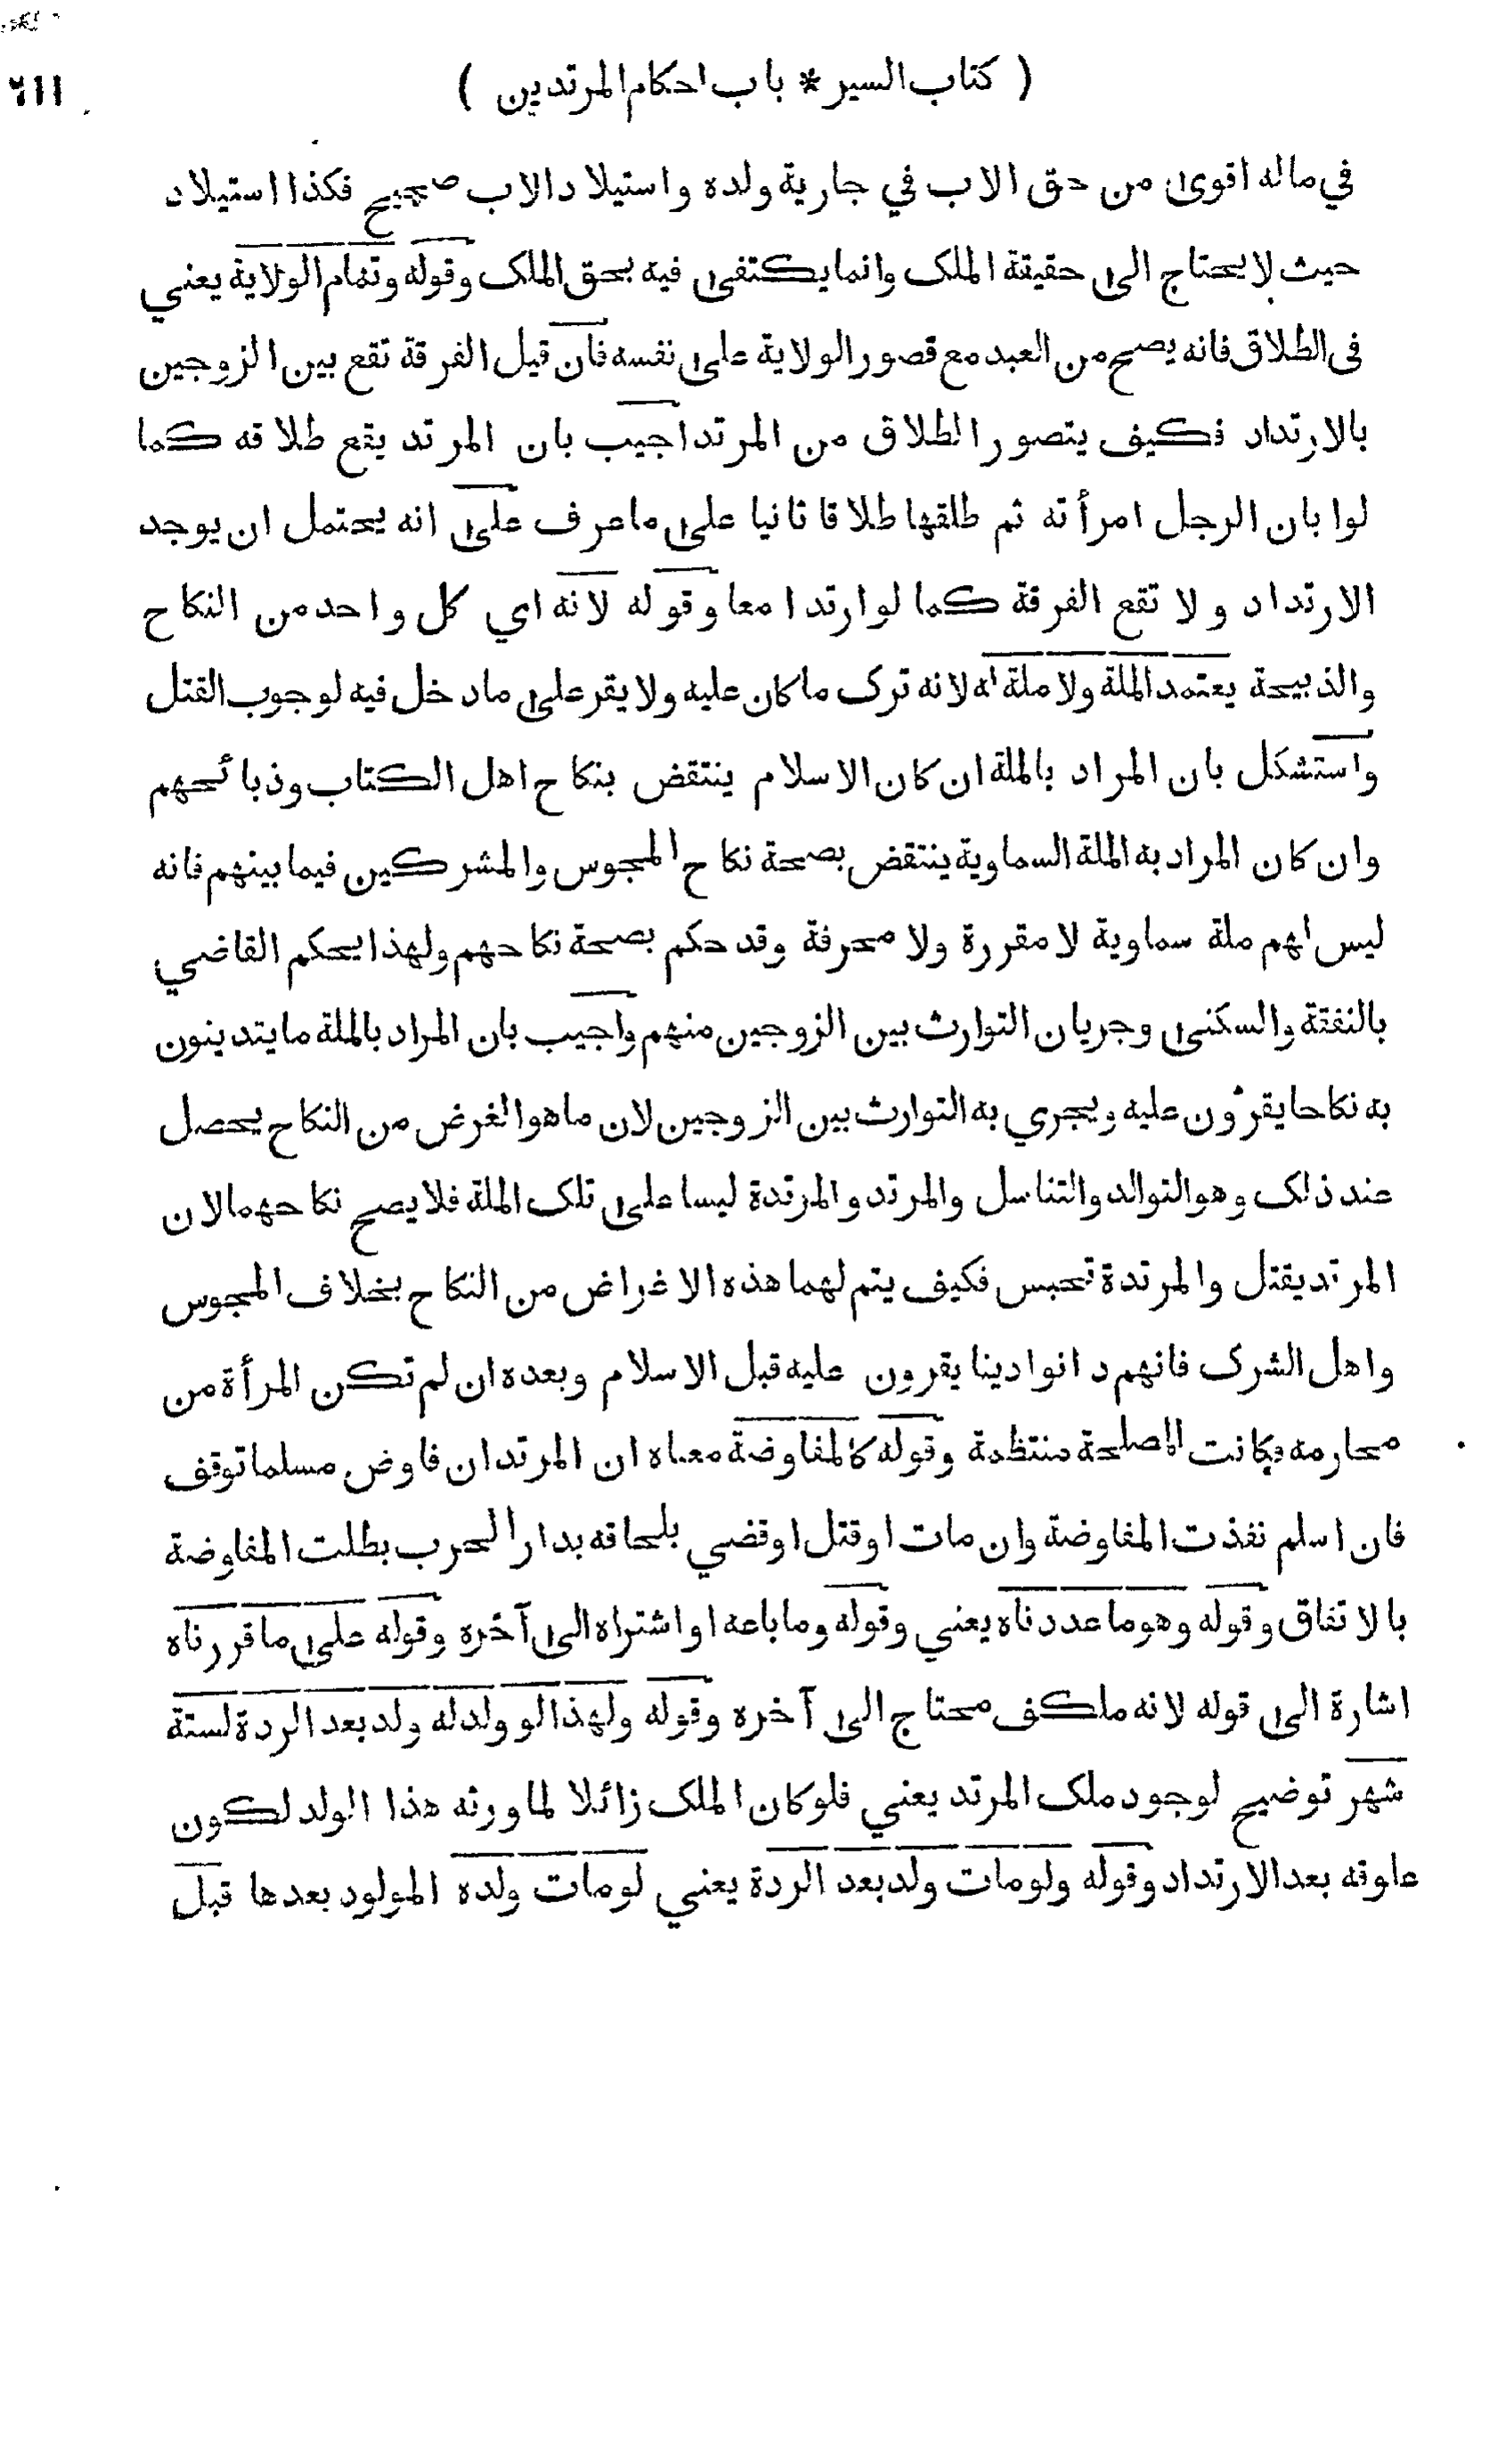 ٦١١
( كتاب السير * باب احكام المرتدين )
في ماله اقوى من حق الاب في جارية ولده واستيلاد الاب صحيح فكذا استيلاد
حيث لا يحتاج الى حقيقة الملک وانما يكتفى فيه بحق الملک وقوله وتمام الولاية يعني
في الطلاق فانه يصح من العبد مع قصور الولاية على نفسه فان قيل الفرقة تقع بين الزوجين
بالارتداد فكيف يتصور الطلاق من المرتد اجيب بان المرتد يقع طلاقه كما
لو ابان الرجل امرأته ثم طلقها طلاقا ثانيا على ما عرف على انه يحتمل ان يوجد
الارتداد ولا تقع الفرقة كما لو ارتدا معا وقوله لانه اي كل واحد من النكاح
والذبيحة يعتمد الملة ولا ملة له لانه ترک ما كان عليه ولا يقر على ما دخل فيه لوجوب القتل
واستشكل بان المراد بالملة ان كان الاسلام ينتقض بنكاح اهل الكتاب وذبائحهم
وان كان المراد به الملة السماوية ينتقض بصحة نكاح المجوس والمشركين فيما بينهم فانه
ليس لهم ملة سماوية لا مقررة ولا محرفة وقد حكم بصحة نكاحهم ولهذا يحكم القاضي
بالنفقة والسكنى وجريان التوارث بين الزوجين منهم واجيب بان المراد بالملة ما يتدينون
به نكاحا يقرون عليه ويجري به التوارث بين الزوجين لان ما هو الغرض من النكاح يحصل
عند ذلک وهو التوالد والتناسل والمرتد والمرتدة ليسا على تلک الملة فلا يصح نكاحهما لان
المرتد يقتل والمرتدة تحبس فكيف يتم لهما هذه الاغراض من النكاح بخلاف المجوس
واهل الشرک فانهم دانوا دينا يقرون عليه قبل الاسلام وبعده ان لم تكن المرأة من
محارمه فكانت المصلحة منتظمة وقوله كالمفاوضة معناه ان المرتد ان فاوض مسلما توقف
فان اسلم نفذت المفاوضة وان مات او قتل او قضي بلحاقه بدار الحرب بطلت المفاوضة
بالاتفاق وقوله وهو ما عددناه يعني وقوله وما باعه او اشتراه الى آخره وقوله على ما قررناه
اشارة الى قوله لانه مالكف محتاج الى آخره وقوله ولهذا لو ولد له ولد بعد الردة لستة
شهر توضيح لوجود ملک المرتد يعني فلو كان الملک زائلا لما ورثه هذا الولد لكون
علوقه بعد الارتداد وقوله ولو مات ولد بعد الردة يعني لو مات ولده المولود بعدها قبل